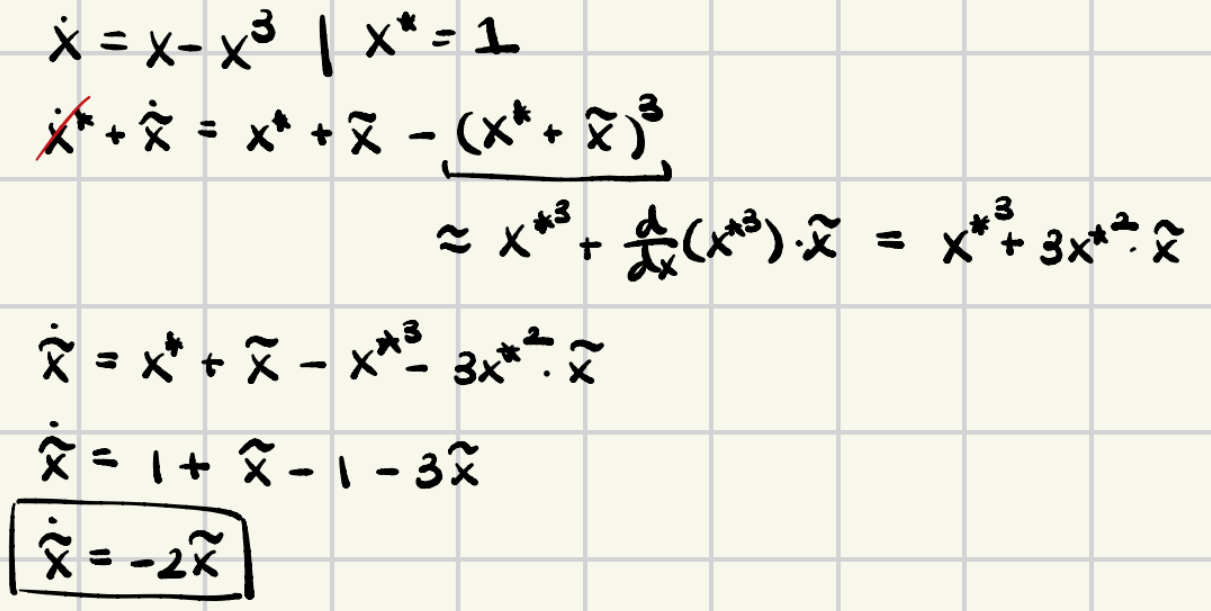 ẋ = x - x³ | x* = 1
ẋ* + x̃̇ = x* + x̃ - (x* + x̃)³
≈ x*³ + d/dx(x*³)·x̃ = x*³ + 3x*²·x̃
x̃̇ = x* + x̃ - x*³ - 3x*²·x̃
x̃̇ = 1 + x̃ - 1 - 3x̃
x̃̇ = -2x̃